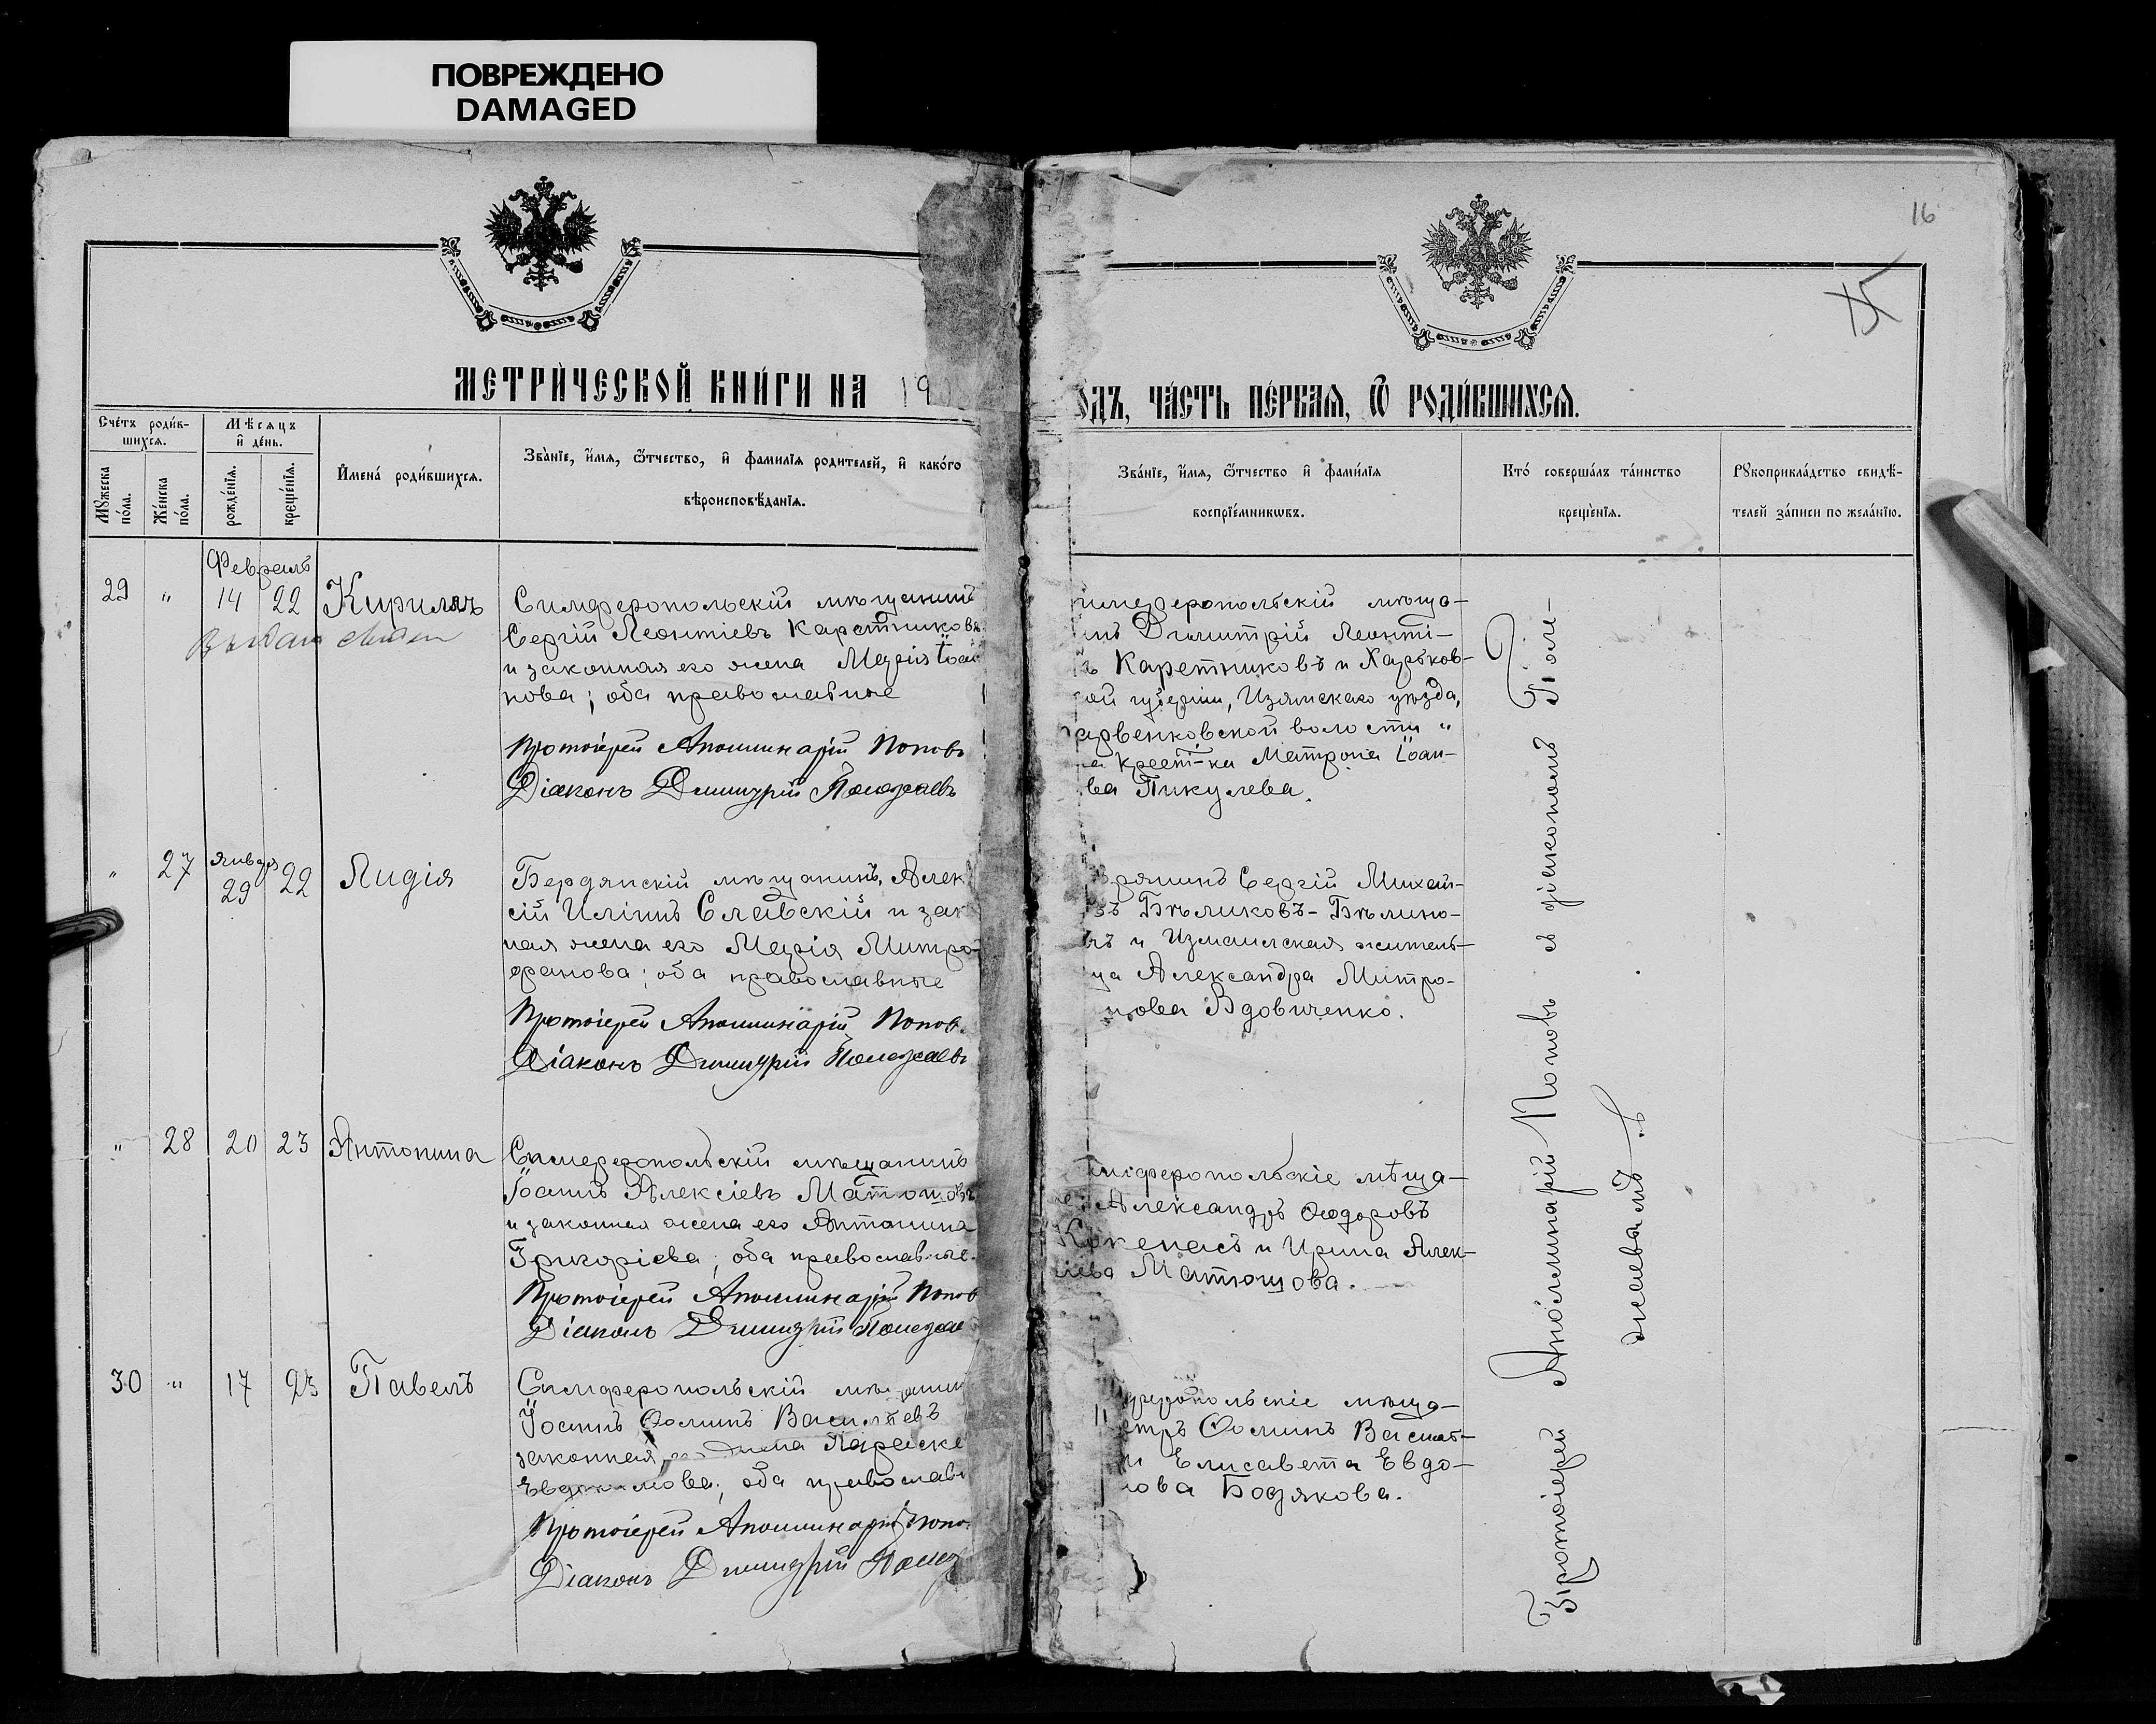 ПОВРЕЖДЕНО
DAMAGED
16
МЕТРИ́ЧЕСКОЙ КНИ́ГИ НА 190
ОДЪ, ЧА́СТЬ ПЕ́РВАЯ, Ѿ РОДИ́ВШИХСЯ.
Сче́тъ роди́в-
шихся.
Мѣсяцъ
и҆ де́нь.
Мꙋжеска
по́ла.
Же́нска
по́ла.
рожде́нїя.
креще́нїя.
И҆мена́ роди́вшихся.
Зва́нїе, и҆́мя, ѻ҆́тчество, и҆ фами́лїя родителей, и҆ како́гѡ
вѣроисповѣ́данїя.
Зва́нїе, и҆́мя, ѻ҆́тчество и҆ фами́лїя
воспрїе́мникѡвъ.
Кто́ соверша́лъ та́инство
креще́нїя.
Рꙋкоприкла́дство свидѣ́-
телей за́писи по жела́нїю.
Февраль
29 " 14 22 Кириллъ
Симферопольскій мѣщанинъ
Сергій Леонтіевъ Каретниковъ
и законная его жена Марія Іоан
нова; оба православные
Протоіерей Аполлинарій Поповъ
Діаконъ Димитрій Полежаевъ
имферопольскій мѣща-
нъ Димитрій Леонті-
ъ Каретниковъ и Харьков-
ой губерніи, Изюмскаго уѣзда,
арвенковской волости "
а крест-ка Матрона Іоан-
ва Пикулева.
Январь
" 27 29 22 Лидія
Бердянскій мѣщанинъ, Алек
сій Иліинъ Славскій и зак
ная жена его Марія Митро-
фанова; оба православные
Протоіерей Аполлинарій Попов
Діаконъ Димитрій Полежаевъ
рянинъ Сергій Михаи-
ъ Бѣликовъ-Бѣлино-
ъ и Измаилская житель-
ца Александра Митро-
нова Вдовиченко.
" 28 20 23 Антонина
Симферопольскій мѣщанинъ
Іоаннъ Алексіевъ Матюшовъ
и законная жена его Антонина
Григоріева; оба православные.
Протоіерей Аполлинарій Попов
Діаконъ Димитрій Полежае
имферопольскіе мѣща-
е Александръ Ѳеодоровъ
и Ирина Алек-
сіева Матюшова.
30 " 17 23 Павелъ
Симферопольскій мѣщанин
Іоаннъ Ѳоминъ Васильевъ
законная его жена Параске
Евдокимова; оба православн
Протоіерей Аполлинарій Попо
Діаконъ Димитрій Полеж
феропольскіе мѣща-
етръ Ѳоминъ Василь-
и Елисавета Евдо-
мова Бодякова.
Протоіерей Аполлинарій Поповъ с діакономъ Поле-
жаевымъ